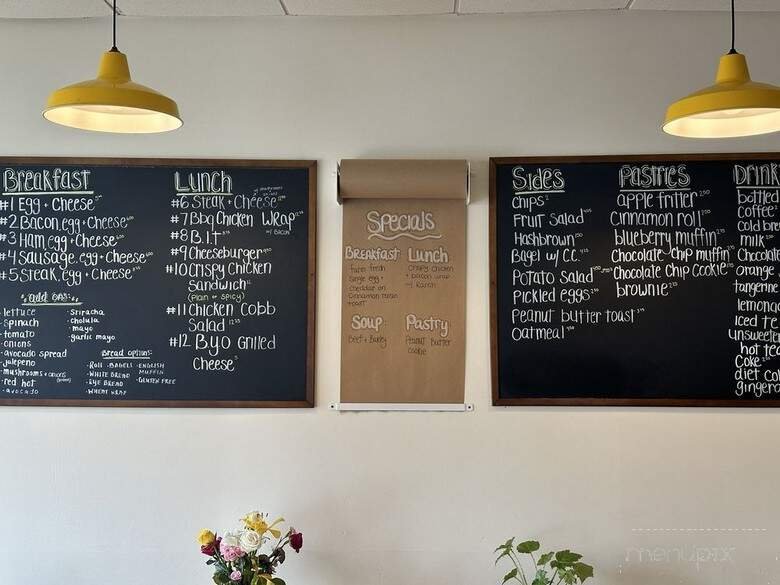 Breakfast
#1 Egg + Cheese
#2 Bacon, egg + Cheese
#3 Ham, egg + Cheese
#4 Sausage, egg + Cheese
#5 Steak, egg + Cheese
"add ons:"
· lettuce
· spinach
· tomato
· onions
· avocado spread
· jalepeno
· mushrooms + onions
· red hot
· avocado
· sriracha
· cholula
· mayo
· garlic mayo
Bread options:
· Roll · BAGELS · ENGLISH MUFFIN
· WHITE BREAD
· RYE BREAD · GLUTEN FREE
· WHEAT WRAP
Lunch
#6 Steak + Cheese
#7 Bbq Chicken Wrap
w/ BACON
#8 B.l.t
#9 Cheeseburger
#10 Crispy Chicken
Sandwich
(Plain or Spicy)
#11 Chicken Cobb
Salad
#12 Byo Grilled
Cheese
Specials
Breakfast
Farm fresh
Single egg +
cheddar on
Cinnamon raisin
toast
Lunch
Crispy chicken
+ bacon wrap
w/ Ranch
Soup
Beef + Barley
Pastry
Peanut Butter
cookie
Sides
Chips
Fruit Salad
Hashbrown
Bagel w/ C.C.
Potato Salad
Pickled eggs
Peanut butter toast
Oatmeal
Pastries
apple fritter
Cinnamon roll
blueberry muffin
Chocolate chip muffin
Chocolate chip cookie
brownie
Drink
bottled
Coffee
Cold bre
milk
Chocolate
orange
tangerine
lemona
iced te
unsweete
hot tea
Coke
diet co
ginger a
menupix